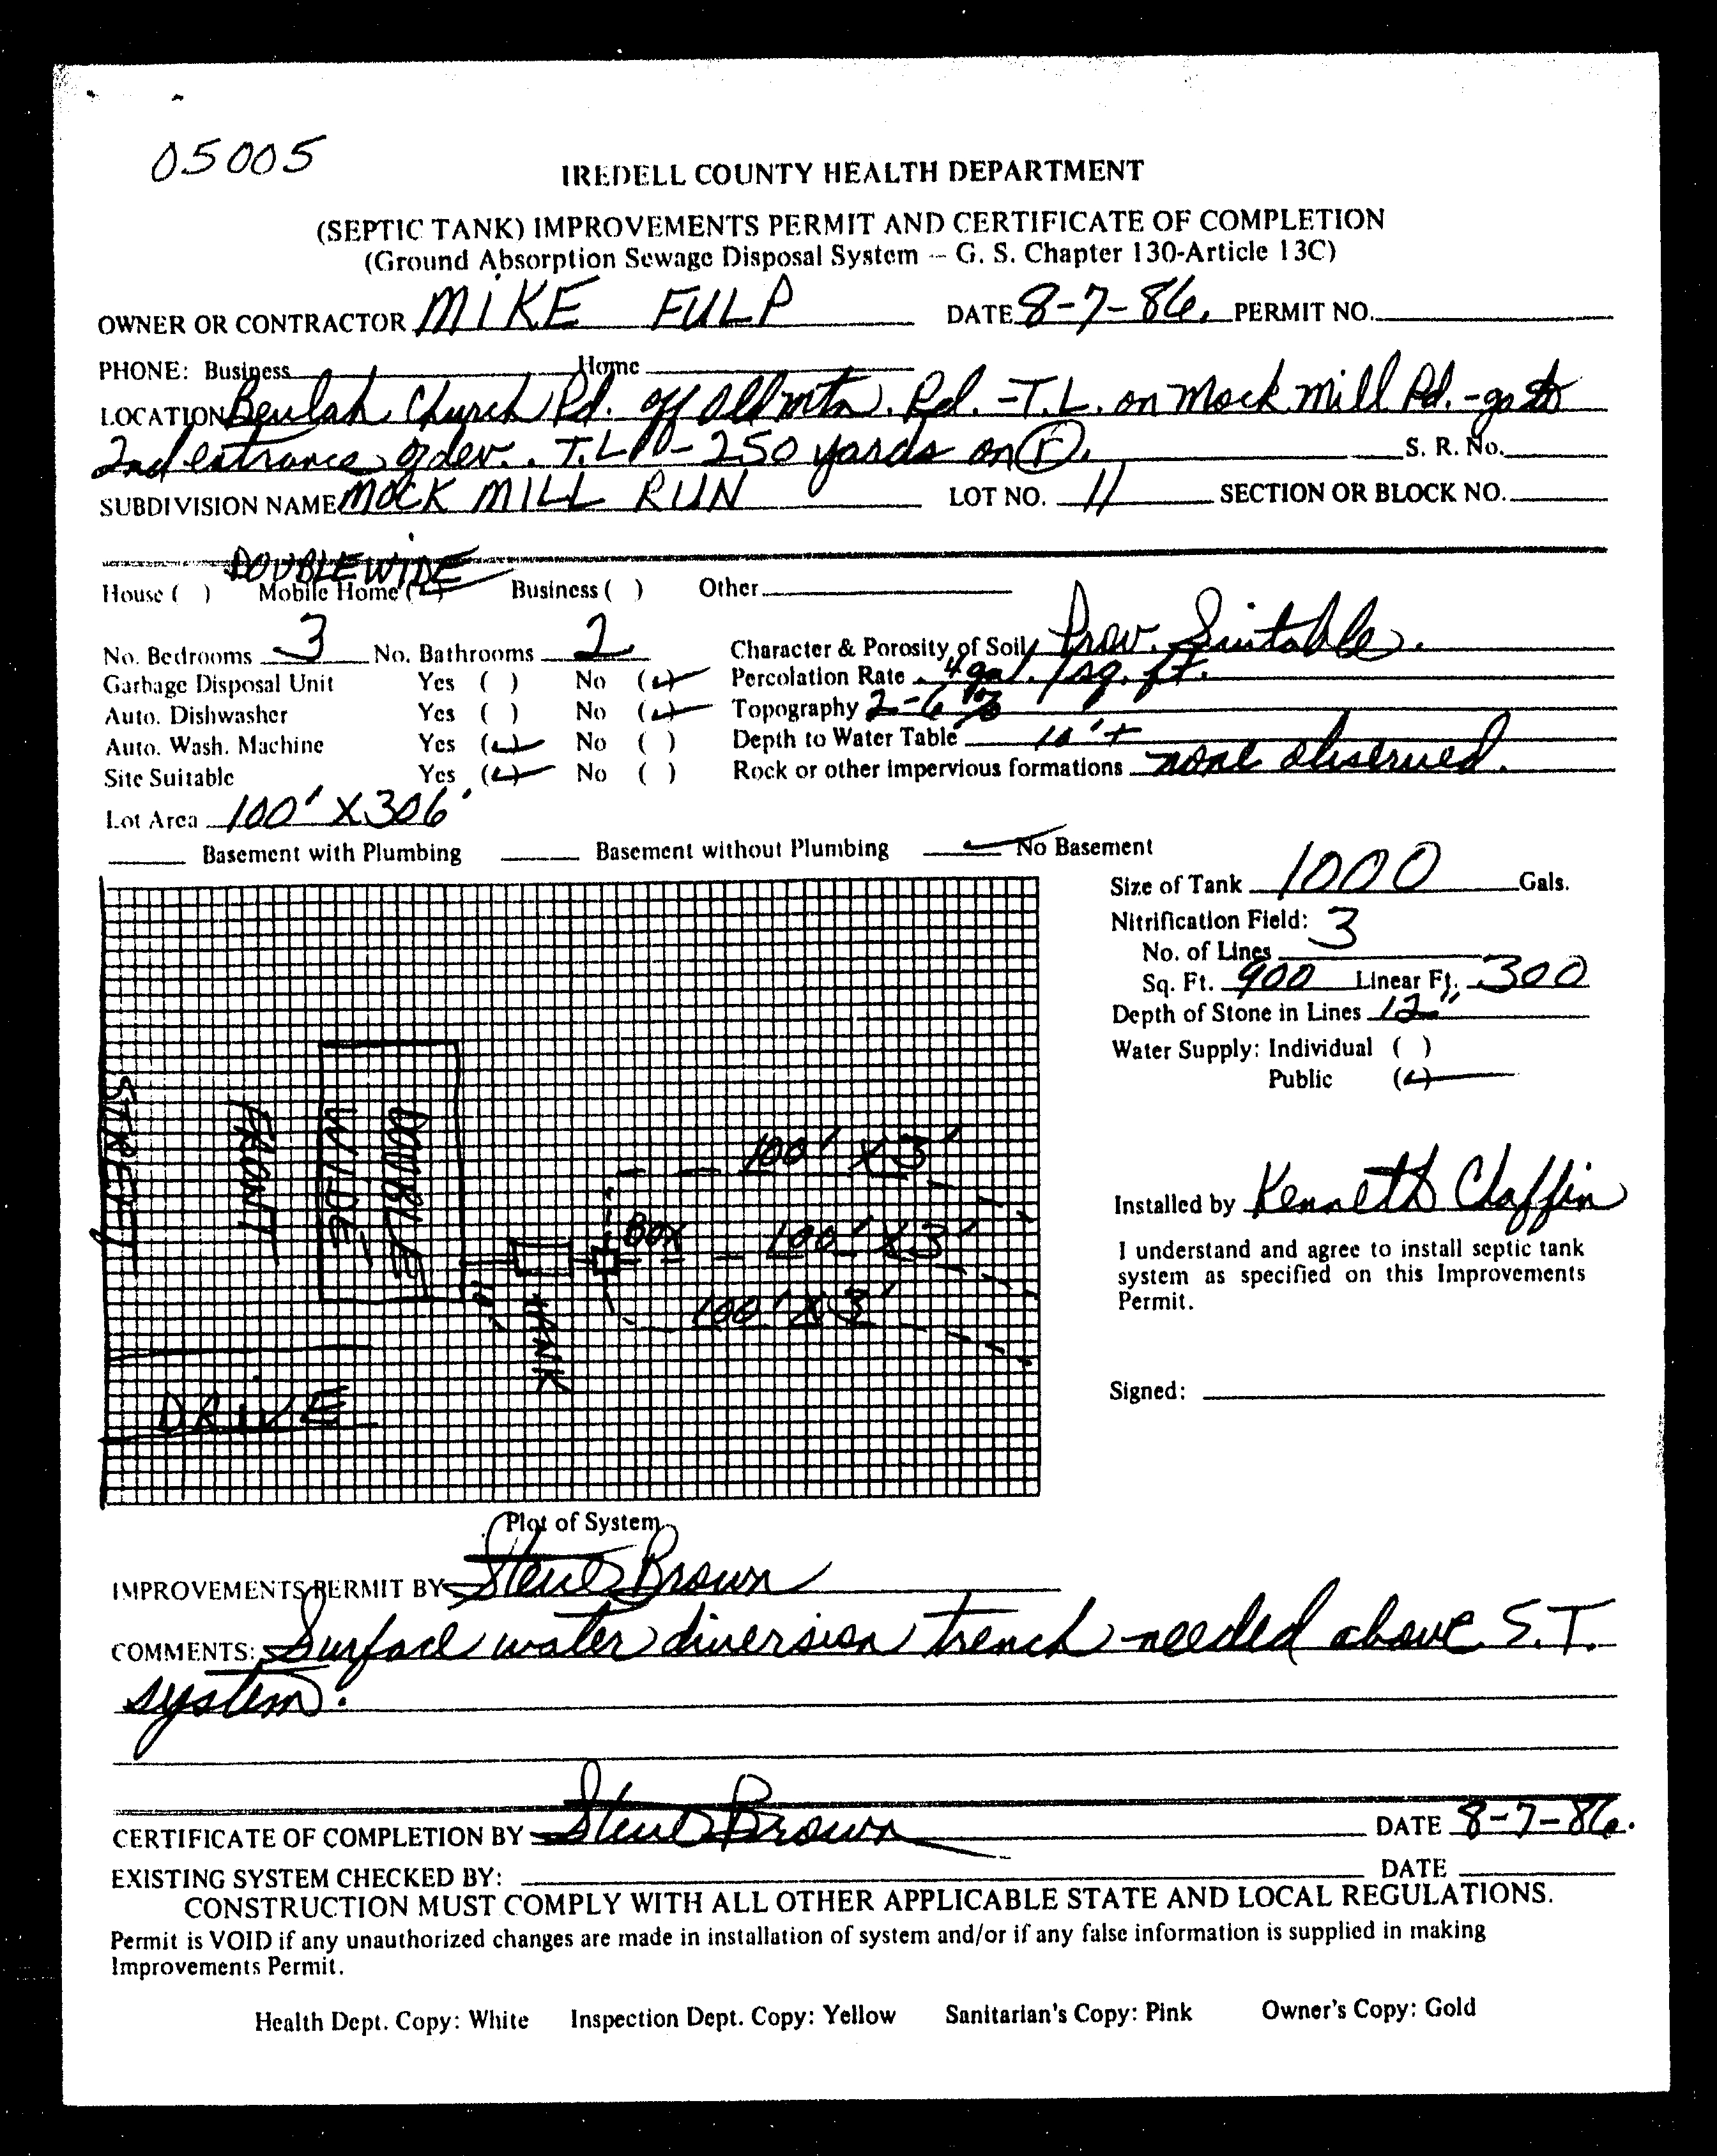 05005
IREDELL COUNTY HEALTH DEPARTMENT
(SEPTIC TANK) IMPROVEMENTS PERMIT AND CERTIFICATE OF COMPLETION
(Ground Absorption Sewage Disposal System -- G. S. Chapter 130-Article 13C)
OWNER OR CONTRACTOR MIKE FULP DATE 8-7-86. PERMIT NO.
PHONE: Business Home
LOCATION Beulah Church Rd. off Old Mtn. Rd. - T.L. on Mock Mill Rd. - go to
2nd entrance of dev. . T.L. - 250 yards on (r). S. R. No.
SUBDIVISION NAME MOCK MILL RUN LOT NO. 11 SECTION OR BLOCK NO.
DOUBLEWIDE
House ( ) Mobile Home (✓) Business ( ) Other
No. Bedrooms 3 No. Bathrooms 2 Character & Porosity of Soil Prov. Suitable.
Garbage Disposal Unit Yes ( ) No (✓) Percolation Rate .4 gal. / sq. ft.
Auto. Dishwasher Yes ( ) No (✓) Topography 2-6 %
Auto. Wash. Machine Yes (✓) No ( ) Depth to Water Table 10'+
Site Suitable Yes (✓) No ( ) Rock or other impervious formations none observed.
Lot Area 100' X 306'
Basement with Plumbing Basement without Plumbing ✓ No Basement
Size of Tank 1000 Gals.
Nitrification Field:
No. of Lines 3
Sq. Ft. 900 Linear Ft. 300
Depth of Stone in Lines 12"
Water Supply: Individual ( )
Public (✓)
STREET
FRONT
DOUBLE
WIDE
100' X 3'
BOX 100' X 3'
100' X 3'
10'
TANK
DRIVE
Installed by Kenneth Claffin
I understand and agree to install septic tank
system as specified on this Improvements
Permit.
Signed:
Plot of System
IMPROVEMENTS PERMIT BY Steve Brown
COMMENTS: Surface water diversion trench needed above S.T.
system.
CERTIFICATE OF COMPLETION BY Steve Brown DATE 8-7-86.
EXISTING SYSTEM CHECKED BY: DATE
CONSTRUCTION MUST COMPLY WITH ALL OTHER APPLICABLE STATE AND LOCAL REGULATIONS.
Permit is VOID if any unauthorized changes are made in installation of system and/or if any false information is supplied in making
Improvements Permit.
Health Dept. Copy: White Inspection Dept. Copy: Yellow Sanitarian's Copy: Pink Owner's Copy: Gold